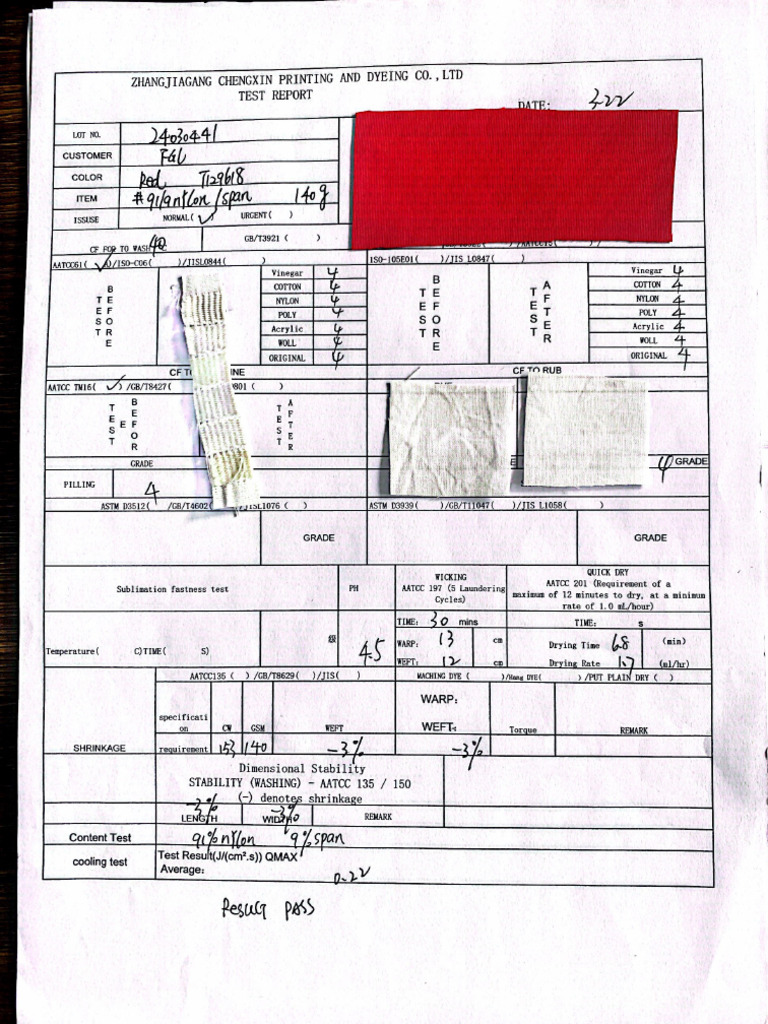 ZHANGJIAGANG CHENGXIN PRINTING AND DYEING CO.,LTD
TEST REPORT
DATE: 3.22
LOT NO. 24030441
CUSTOMER F&L
COLOR Red T129618
ITEM #91/9nylon/span 140g
ISSUSE NORMAL( ✓ ) URGENT( )
CF FOR TO WASH 40 GB/T3921 ( )
AATCC61( ✓ )/ISO-C06( )/JISL0844( ) ISO-105E01( )/JIS L0847( )
TEST BEFORE
Vinegar 4
COTTON 4
NYLON 4
POLY 4
Acrylic 4
WOLL 4
ORIGINAL 4
TEST BEFORE
TEST AFTER
Vinegar 4
COTTON 4
NYLON 4
POLY 4
Acrylic 4
WOLL 4
ORIGINAL 4
CF TO RUB
AATCC TM16( ✓ )/GB/T8427( )
TEST BEFORE
TEST AFTER
GRADE 4 GRADE
PILLING 4
ASTM D3512( )/GB/T4602( )/JISL1076 ( ) ASTM D3939( )/GB/T11047( )/JIS L1058( )
GRADE GRADE
Sublimation fastness test PH
WICKING
AATCC 197 (5 Laundering Cycles)
QUICK DRY
AATCC 201 (Requirement of a
maximum of 12 minutes to dry, at a minimum
rate of 1.0 mL/hour)
TIME: 30 mins TIME: s
Temperature( C)TIME( S) 级 4.5
WARP: 13 cm Drying Time 6.8 (min)
WEFT: 12 cm Drying Rate 1.7 (ml/hr)
AATCC135 ( )/GB/T8629( )/JIS( ) MACHING DYE ( )/Hang DYE( )/PUT PLAIN DRY ( )
SHRINKAGE
specification CW GSM WEFT
WARP:
WEFT: Torque REMARK
requirement 153 140 -3% -3%
Dimensional Stability
STABILITY (WASHING) - AATCC 135 / 150
(-) denotes shrinkage
-3% -3%
LENGTH WIDTH REMARK
Content Test 91%nylon 9%span
cooling test Test Result(J/(cm².s)) QMAX
Average: 0.22
Result PASS